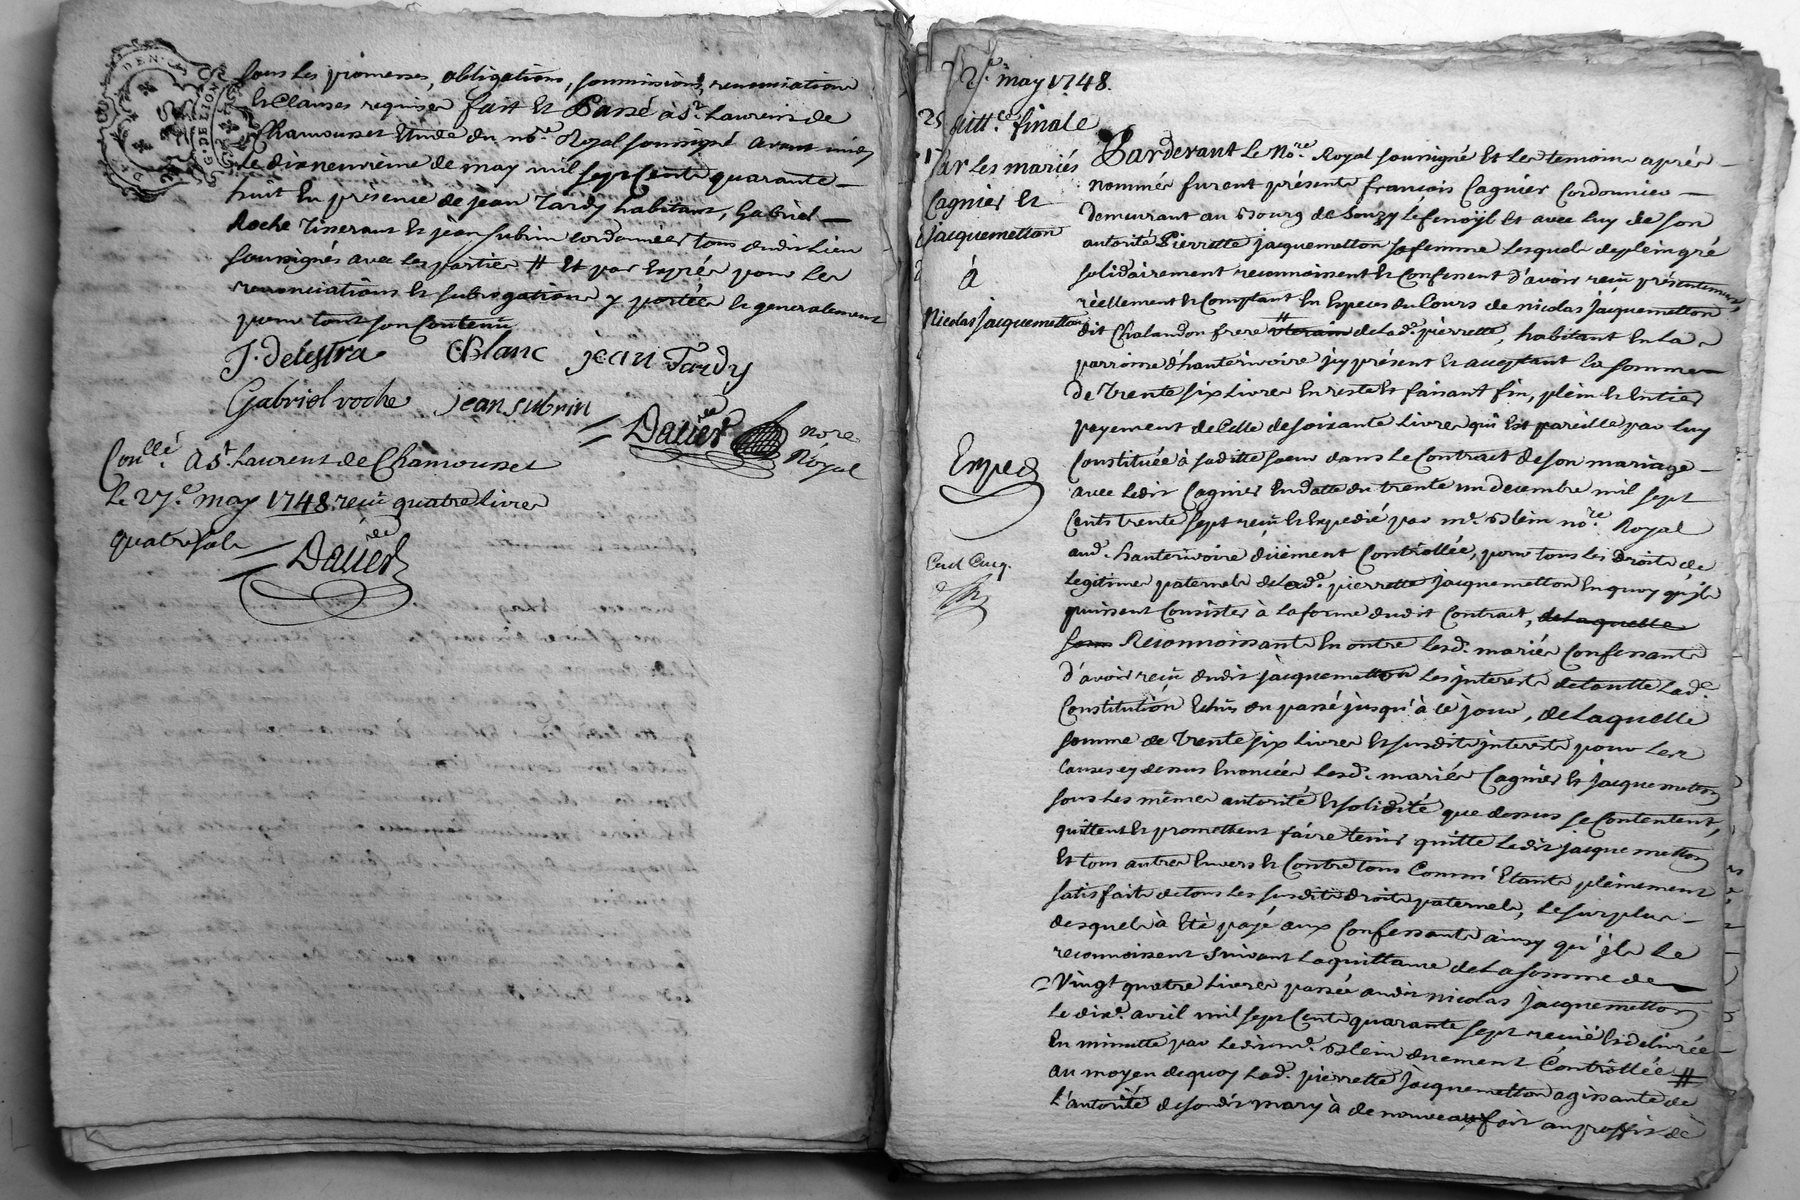 G. DE LION
sous les promesses, obligations, soummissions, renonciations
et Clauses requises fait et Passé à St. Laurens de
Chamousset Etude du nore. Royal soussigné avant midy
Le dixneuvième de may mil sept Cents quarante
huit En présence de jean Tardy habitant, Gabriel
Roche Tisserant et jean subrin cordonnier tous dudit Lieu
soussignés avec les parties # Et par Exprès pour les
renonciations et subrogations y portées et generalement
pour tout son Contenu
J. delestra CBlanc jean Tardy
Gabriel roche jean subrin
Dauer nore Royal
Conllé. A St. Laurent de Chamousset
Le 27e. may 1748. reçu quatre livres
quatre sols
Dauer
may 1748.
25 quittce. finale
Par Les mariés
Cagnier Et
Jacquemetton
à
Nicolas Jacquemetton
Exped
Pardevant Le Nore. Royal soussigné Et Les temoins après
nommés furent présents françois Cagnier Cordonnier
demeurant au Bourg de Souzy Et avec luy de son
autorité Pierrette jacquemetton sa femme Lesquels de plein gré
solidairement reconnoissent et Confessent d'avoir reçu présentement,
réellement et Comptant En Especes du Cours de nicolas jacquemetton
dit Chalandon frere # uterain de Lad. pierrette, habitant En La
parroisse d'hauterivoire jcy présent et acceptant La somme
de Trente six Livres En reste et faisant fin, plein et Entier
payement de Celle de soixante Livres qui Est pareille par luy
Constituée à saditte soeur dans Le Contrat de son mariage
avec Ledit Cagnier En datte du trente un decembre mil sept
Cents trente sept reçu et Expedié par me. Blein nore. Royal
aud. hauterivoire dûement Controllée, pour tous les droits de
Legitimes paternels de Lad. pierrette jacquemetton En quoy qu'jls
puissent Consister à La forme dudit Contrat, de Laquelle
som Reconnoissants En outre Lesd. mariés Confessants
d'avoir reçu dudit jacquemetton Les jnterests de toutte Lad.
Constitution Echûs du passé jusqu'à Ce jour, de Laquelle
somme de Trente six Livres et susdits jnterests pour Les
Causes cy dessus Enoncées Lesd. mariés Cagnier et jacquemetton
sous Les mêmes autorité et solidité que dessus se Contentent,
quittent et promettent faire tenir quitte Ledit jacquemetton
Et tous autres Envers et Contre tous Comm' Etants pleinement
satisfaits de tous Les susdits droits paternels, Le surplus
desquels à Eté payé aux Confessants ainsy qu'jls Le
reconnoissent suivant La quittance de La somme de
Vingt quatre Livres passée audit nicolas jacquemetton
Le dixe. avril mil sept Cents quarante sept reçuë Et delivrée
En minutte par Ledit me. Blein duement Controllée #
au moyen de quoy Lad. pierrette jacquemetton agissante de
L'autorité de sondit mary à de nouveau fait au proffit de